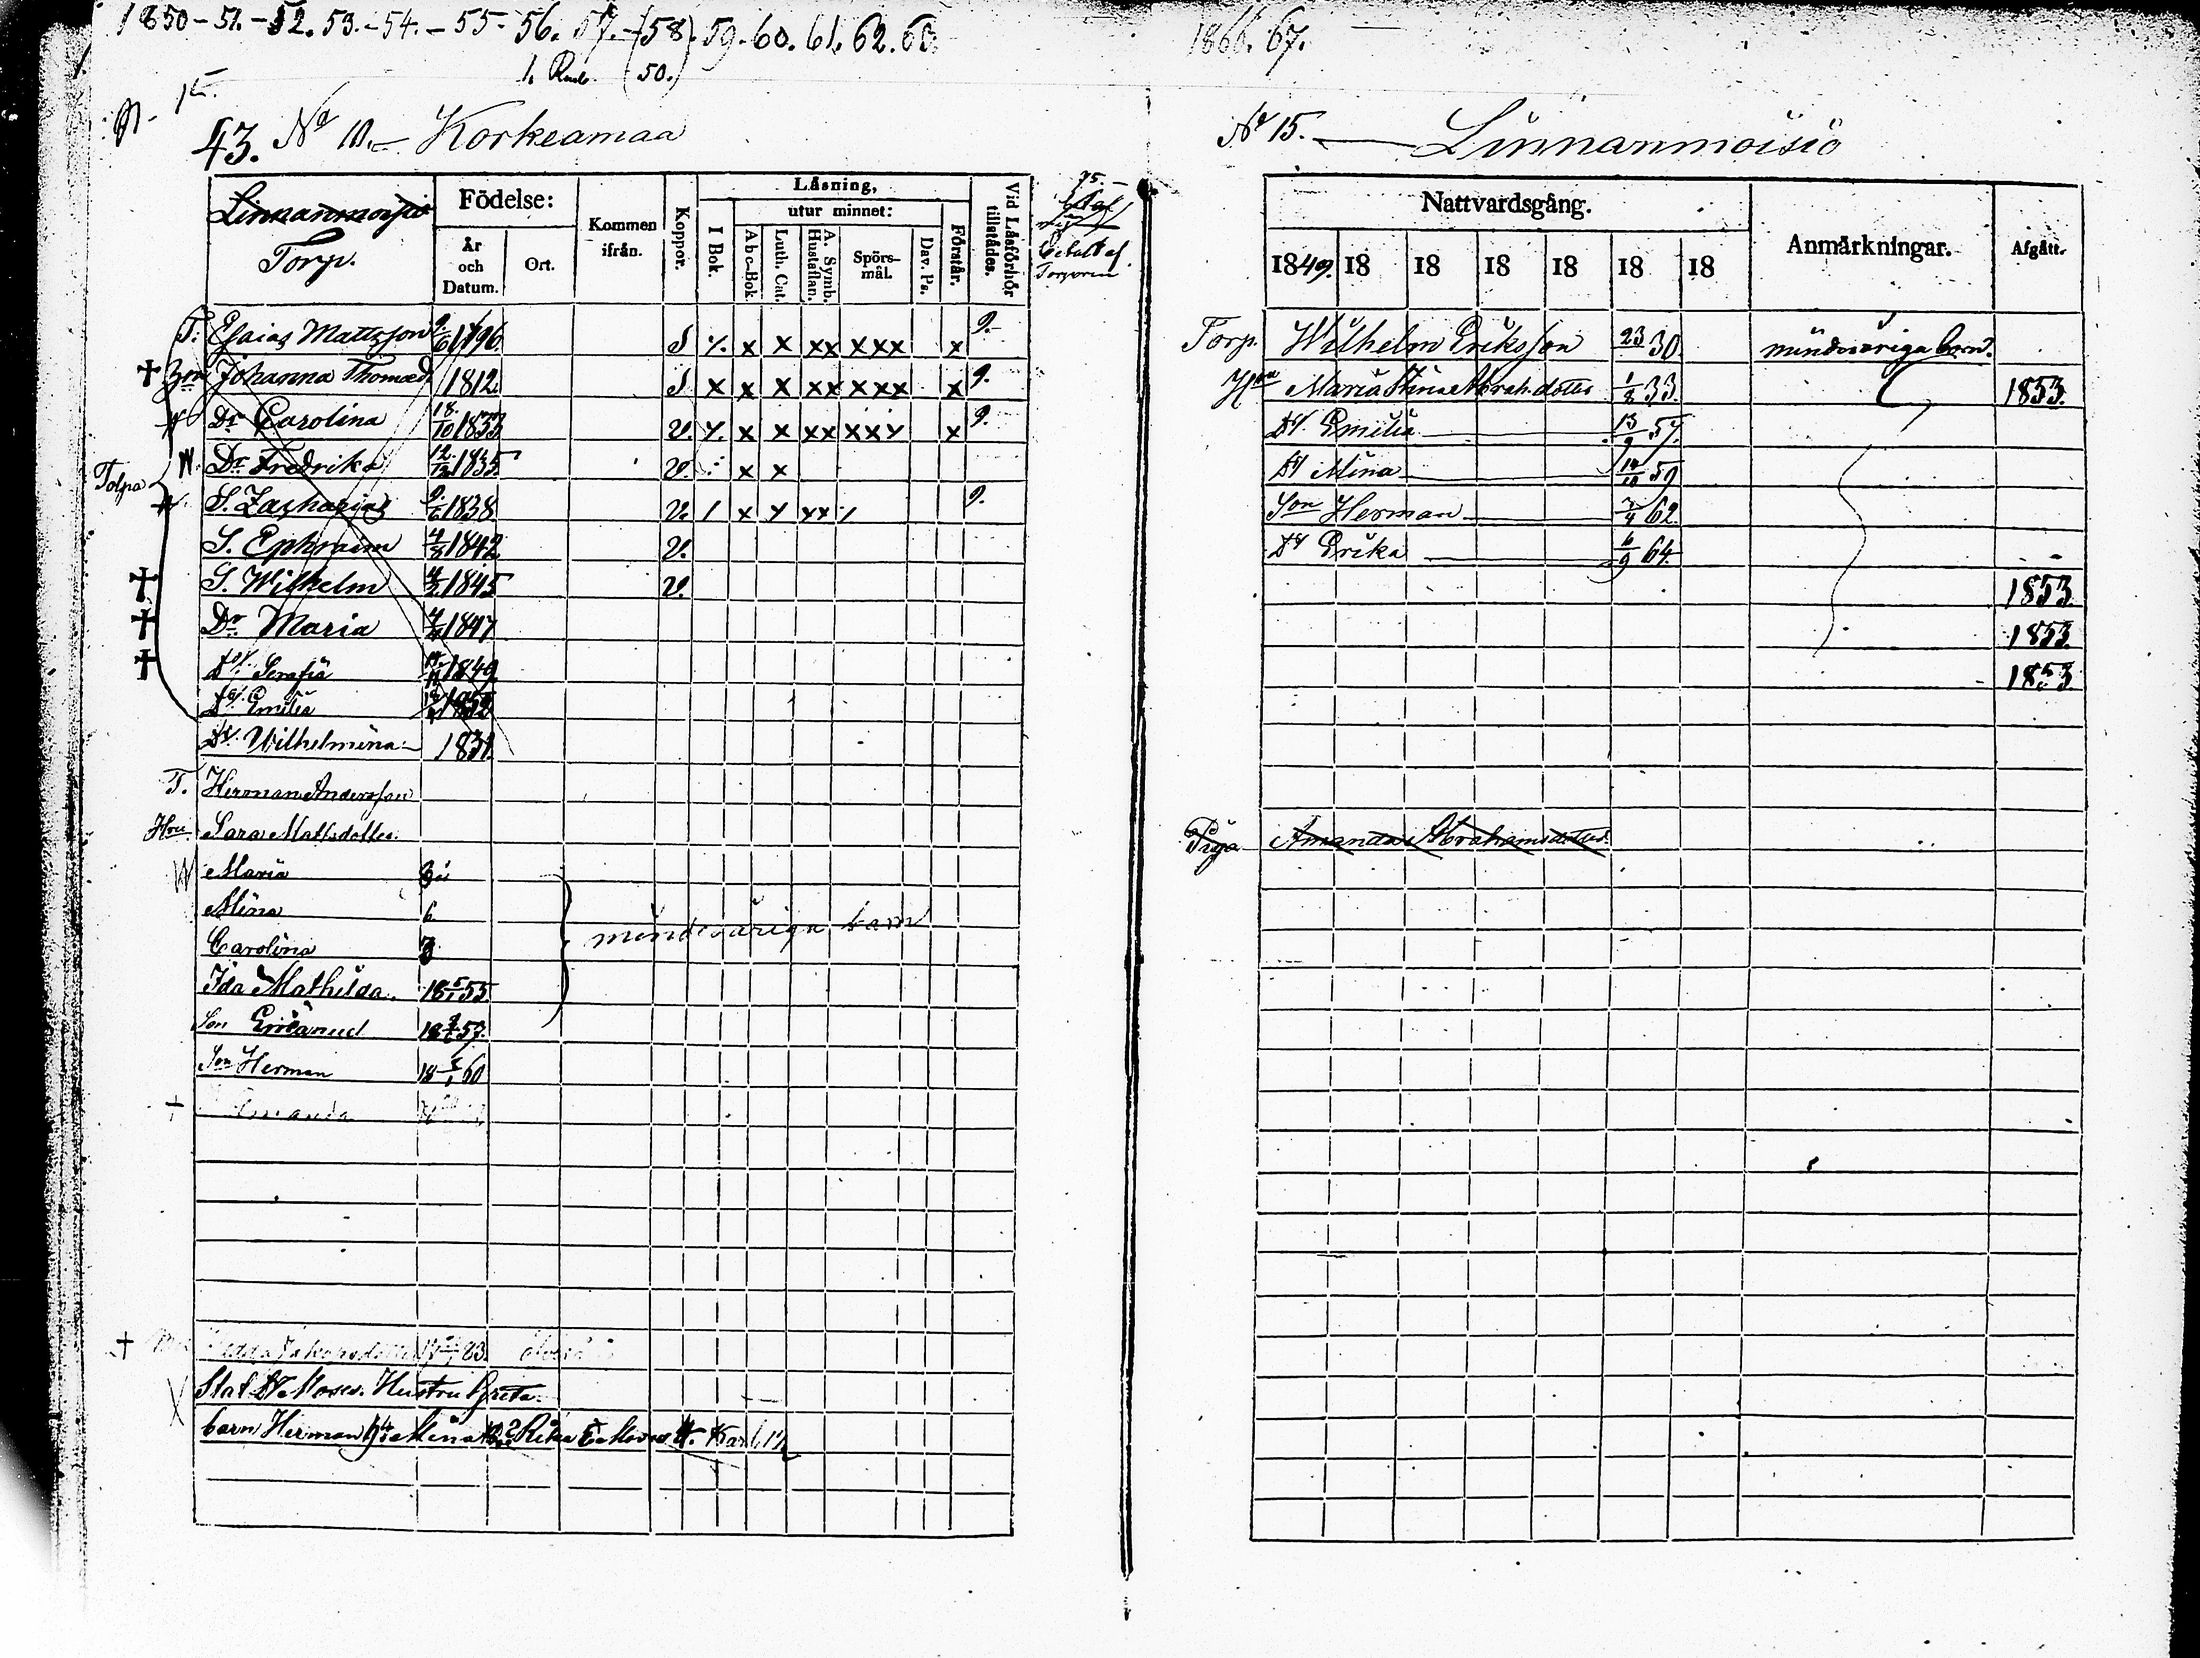 1850-51.-52.53.-54.-55-56.57.-(58).59.60.61.62.63.
(50.)
43. No 10.- Korkeamaa
Linnanmoisio
Torp.
Födelse:
År och Datum.
Ort.
Kommen ifrån.
Koppor.
Läsning,
I Bok.
utur minnet:
Abc-Bok
Luth. Cat.
A. Symb. Hustaflan.
Spörs-mål.
Dav. Ps.
Förstår.
Vid Läsförhör tillstädes.
T. Esaias Mattsson 1796. S x x xx xxx x 9.
† Johanna Thomæd. 1812. S x x x xx xxx x 9.
Dr Carolina 18/10 1833 v. x x xx xxx x 9.
Dr Fredrika 12/12 1835 v. x x
Tolpa
S. Zacharias 9/6 1838 v. 9.
S. Ephraim 4/8 1842 v.
† S. Wilhelm 1845 v.
† Dr Maria 1847
† Dr Serafia 1849
Dr Emilia 1852
Dr Wilhelmina 1831
T. Herman Andersson
Hru Sara Mattsdotter
Maria 8
Mina 6
Carolina 3
minderåriga barn
Ida Mathilda. 18 55
Son 18 57.
Son Herman 18 60
† Amanda
†
Stat Dr Moses. Hustru Greta.
barn Herman Mina Rika Moses Karl
1866.67.
No 15. Linnanmoisio
Nattvardsgång.
1849. 18 18 18 18 18 18
Anmärkningar.
Afgått.
Torp. Wilhelm Eriksson 23 30 minderåriga barn.
Hru Maria Stina Abrah.dotter 1/8 33. 1853.
Dr Emilia 13/9 57.
Dr Mina 14/10 59
Son Herman 7/4 62
Dr Erika 6/9 64.
1853.
1853.
1853.
Piga Amanda Abrahamsdotter